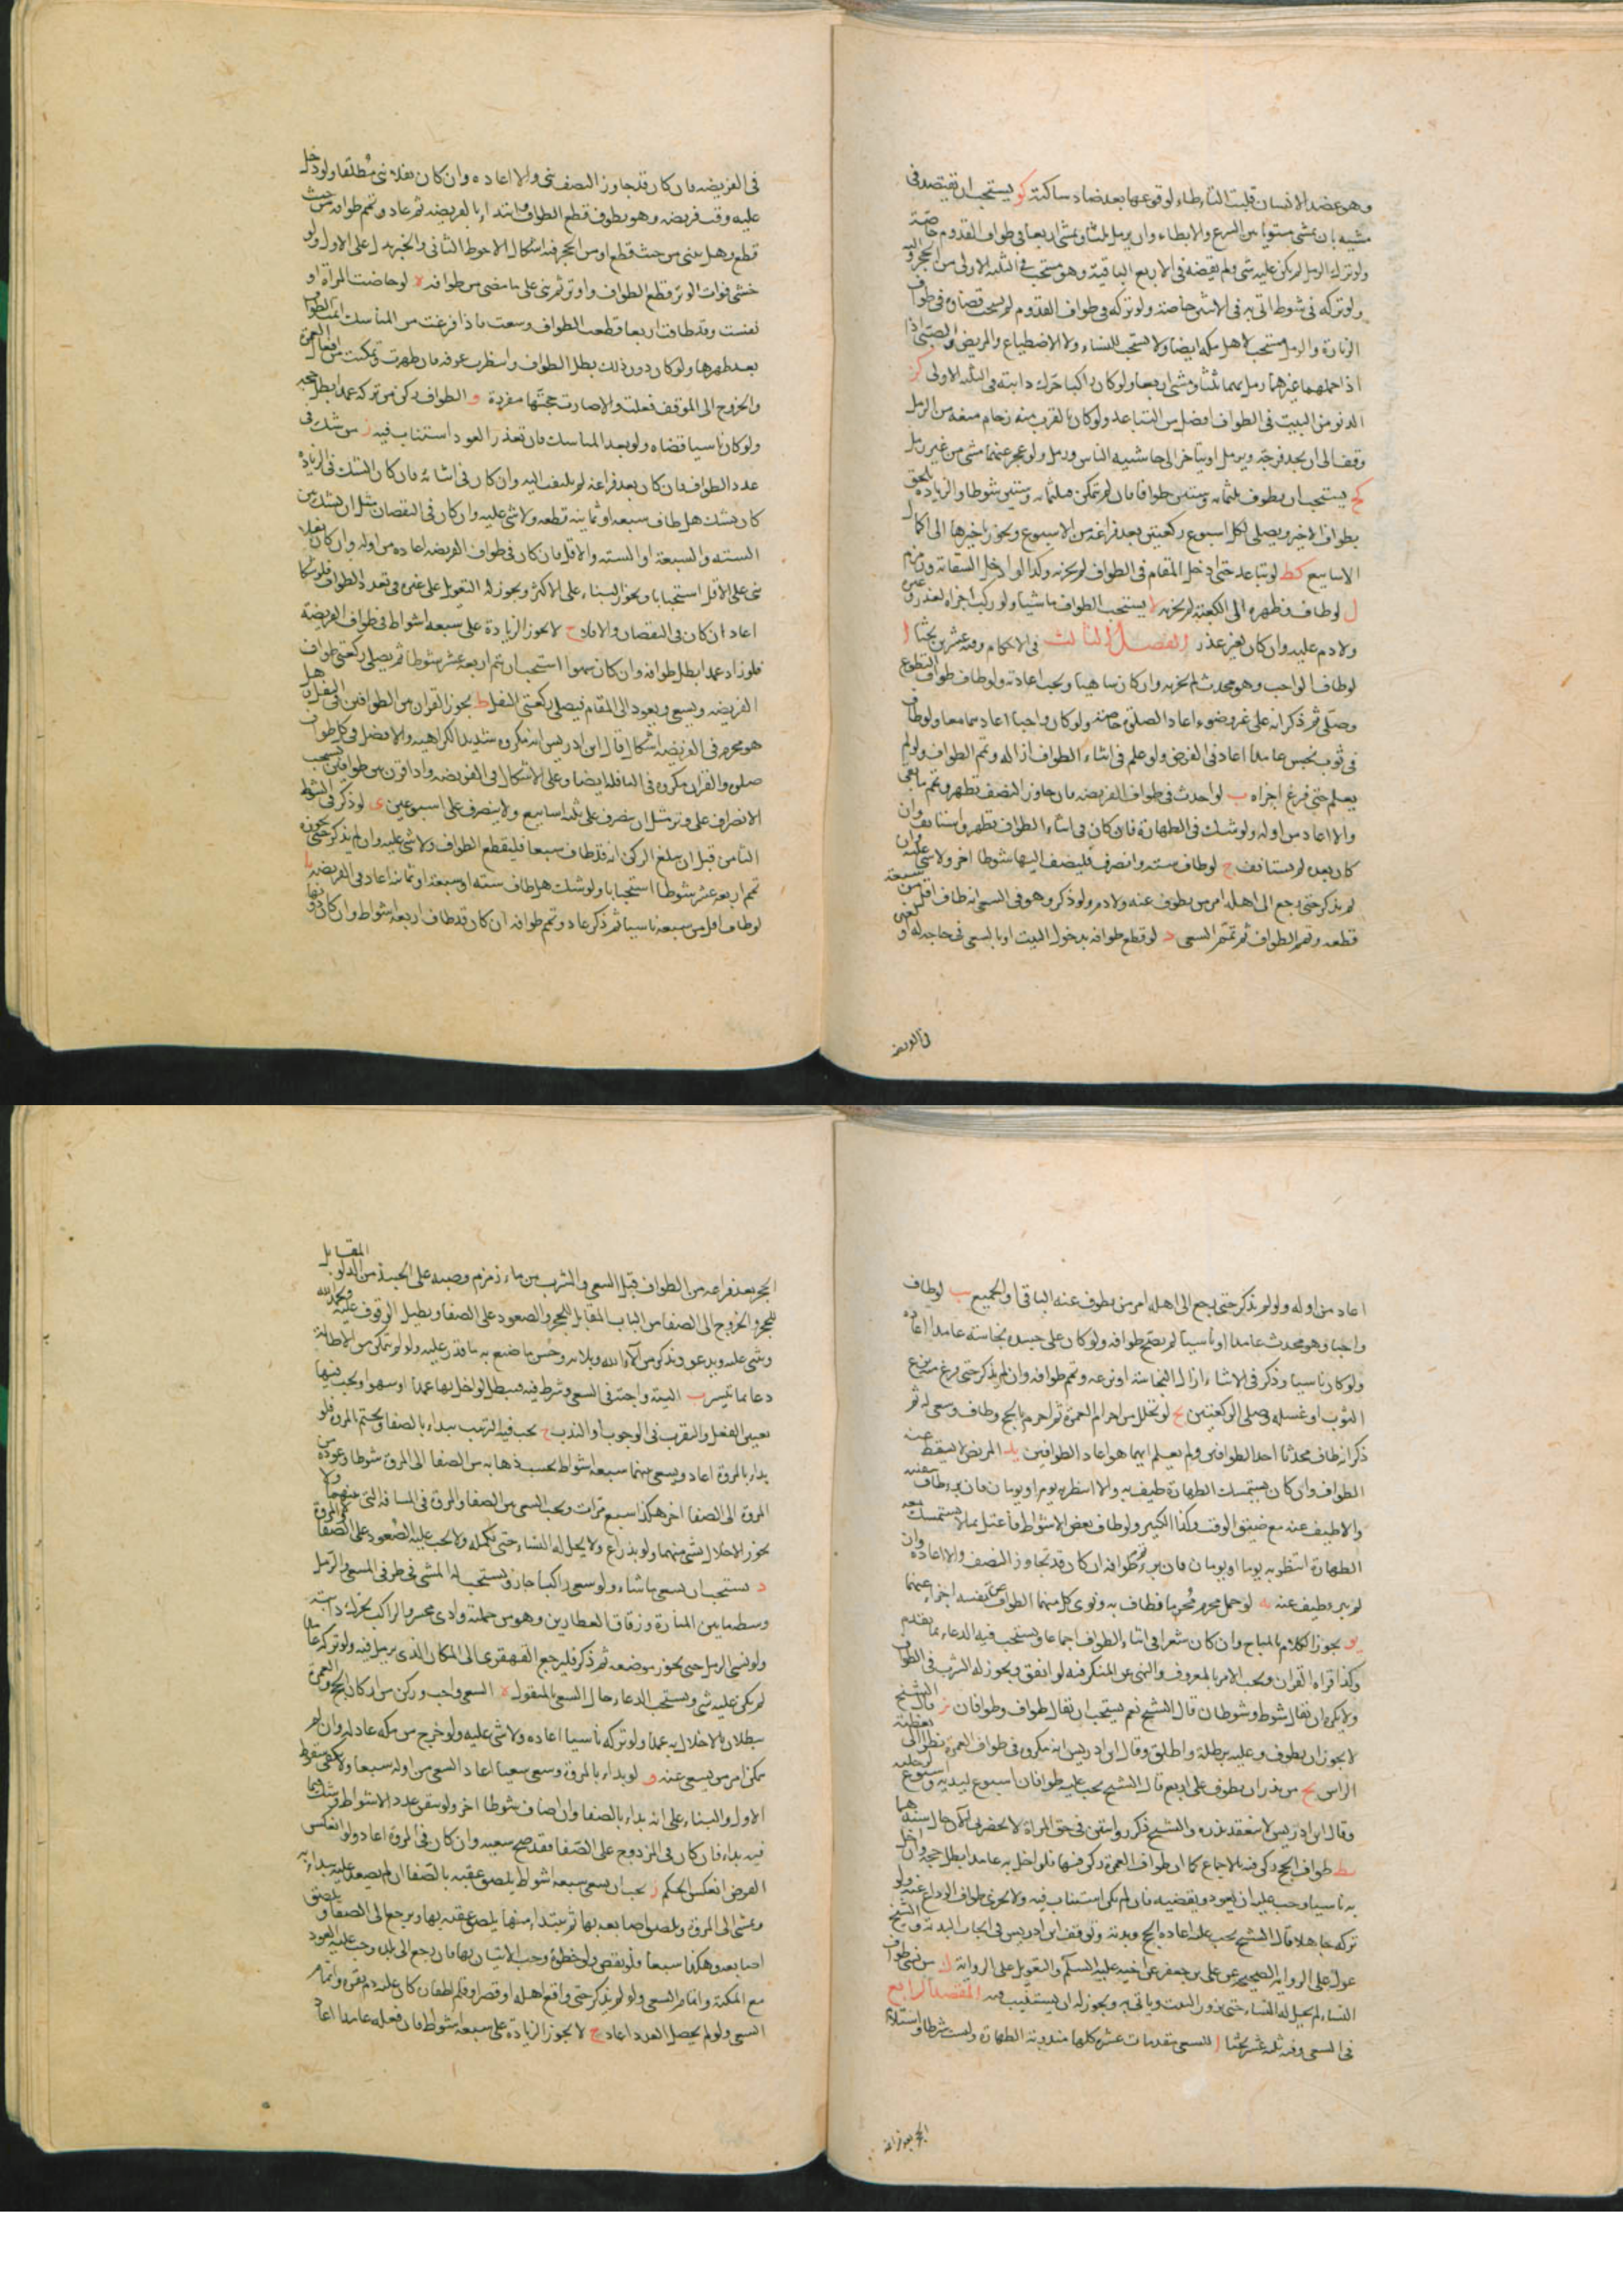 وهو عضد الانسان قلبت التاء طاء لوقوعها بعد ضاد ساكنة كو يستحب ان يقتصد فى
مشيه بان يمشى مستويا بين السرع والابطاء وان يرمل ثلثا ويمشى اربعا فى طواف القدوم خاصة
ولو ترك الرمل لم يكن عليه شى ولم يقضه فى الاربع الباقية وهو مستحب فى الثلثة الاولى من الحجر اليه
ولو تركه فى شوط اتى به فى الاثنين خاصة ولو تركه فى طواف القدوم لم يستحب قضاؤه فى طواف
الزيارة والرمل مستحب لاهل مكه ايضا ولا يستحب للنساء ولا الاضطباع والمريض والصبى اذا
اذا حملهما غيرهما رمل بهما ثلثا ومشى اربعا ولو كان راكبا حرك دابته فى الثلثة الاولى كز
الدنو من البيت فى الطواف افضل من التباعد ولو كان بالقرب منه زحام يمنعه من الرمل
وقف الى ان يجد فرجة ويرمل او يتاخر الى حاشيه الناس ورمل ولو عجز عنهما مشى من غير رمل
كح يستحب ان يطوف ثلثمائه وستين طوافا فان لم يتمكن فثلثمائه وستين شوطا والزيادة يلحق
بطوافه الاخير ويصلى لكل اسبوع ركعتين بعد فراغه من الاسبوع ويجوز تاخيرها الى اكمال
الاسابيع كط لو تباعد حتى دخل المقام فى الطواف لم يجزه وكذا لو ادخل السقاية وزمزم
ل لو طاف وظهره الى الكعبة لم يجزه لا يستحب الطواف ماشيا ولو ركب اجزاه لعذر وغيره
ولا دم عليه وان كان لغير عذر الفصل الثالث فى الاحكام وفيه عشرون بحثا ا
لو طاف الواجب وهو محدث لم يجزه وان كان ساهيا ويجب اعادته ولو طاف طواف التطوع
وصلى ثم ذكر انه على غير وضوء اعاد الصلوة خاصة ولو كان واجبا اعادهما معا ولو طاف
فى ثوب نجس عامدا اعاد فى الفرض ولو علم فى اثناء الطواف ازاله وتم الطواف ولو لم
يعلم حتى فرغ اجزاه ب لو احدث فى طواف الفريضه فان جاوز النصف تطهر وتمم ما بقى
والا اعاد من اوله ولو شك فى الطهارة فان كان فى اثناء الطواف تطهر واستانف وان
كان بعده لم يستانف ج لو طاف سته وانصرف فليضف اليها شوطا اخر ولا شى عليه وان
لم يذكر حتى رجع الى اهله امر من يطوف عنه ولا دم ولو ذكر وهو فى السعى انه طاف اقل من سبعة
قطعه وتمم الطواف ثم تمم السعى د لو قطع طوافه بدخول البيت او بالسعى فى حاجة له او لغيره
فى الفريضه
فى الفريضه فان كان قد جاوز النصف بنى والا اعاده وان كان نفلا بنى مطلقا ولو دخل
عليه وقت فريضه وهو يطوف قطع الطواف وابتدا بالفريضه ثم عاد وتمم طوافه من حيث
قطع وهل يبنى من حيث قطع او من الحجر فيه اشكال الاحوط الثانى والخبر يدل على الاول ولو
خشى فوات الوتر قطع الطواف واوتر ثم بنى على ما مضى من طوافه ه لو حاضت المراة او
نفست وقد طافت اربعا قطعت الطواف وسعت فاذا فرغت من المناسك اتمت الطواف
بعد طهرها ولو كان دون ذلك بطل الطواف وانتظرت عرفه فان طهرت وتمكنت من افعال العمرة
والخروج الى الموقف فعلت والا صارت حجتها مفردة و الطواف ركن من تركه عمدا بطل حجه
ولو كان ناسيا قضاه ولو بعد المناسك فان تعذر العود استناب فيه ز من شك فى
عدد الطواف فان كان بعد فراغه لم يلتفت اليه وان كان فى اثنائه فان كان الشك فى الزيادة
كان يشك هل طاف سبعه او ثمانية قطعه ولا شى عليه وان كان فى النقصان مثل ان يشك بين
السته والسبعة او السته والاقل فان كان فى طواف الفريضه اعاده من اوله وان كان نفلا
بنى على الاقل استحبابا ويجوز البناء على الاكثر ويجوز له التعويل على غيره فى تعدد الطواف فلو شكا
اعاد ان كان فى النقصان والا فلا ح لا يجوز الزيادة على سبعه اشواط فى طواف الفريضة
فلو زاد عمدا بطل طوافه وان كان سهوا استحب ان يتم اربعة عشر شوطا ثم يصلى ركعتى طواف
الفريضه ويسعى ويعود الى المقام فيصلى ركعتى النفل ط يجوز القران بين الطوافين فى النفل وهل
هو محرم فى الفريضه اشكال قال ابن ادريس انه مكروه شديد الكراهية والافضل فى كل طواف
صلوة والقران مكروه فى النافله ايضا وعلى الاشكال فى الفريضه واذا قرن بين طوافين يستحب
الانصراف على وتر مثل ان ينصرف على ثلثه اسابيع ولا ينصرف على اسبوعين ى لو ذكر فى الشوط
الثامن قبل ان يبلغ الركن انه قد طاف سبعا فليقطع الطواف ولا شى عليه وان لم يذكر حتى يجوزه
تمم اربعه عشر شوطا استحبابا ولو شك هل طاف سته او سبعة او ثمانية اعاد فى الفريضه يا
لو طاف اقل من سبعه ناسيا ثم ذكر عاد وتمم طوافه ان كان قد طاف اربعة اشواط وان كان دونها
اعاد من اوله ولو لم يذكر حتى رجع الى اهله امر من يطوف عنه الباقى او الجميع يب لو طاف
واجبا وهو محدث عامدا او ناسيا لم يصح طوافه ولو كان على جسده نجاسة عامدا اعاده
ولو كان ناسيا وذكر فى الاثناء ازال النجاسة او نزعه وتمم طوافه وان لم يذكر حتى فرغ نزع
الثوب او غسله وصلى الركعتين يج لو تحلل من احرام العمرة ثم احرم بالحج وطاف وسعى له ثم
ذكر انه طاف محدثا احد الطوافين ولم يعلم ايهما هو اعاد الطوافين يد المريض لا يسقط عنه
الطواف وان كان يستمسك الطهارة طيف به والا انتظر به يوم او يومان فان برء طاف بنفسه
والا طيف عنه مع ضيق الوقت وكذا الكسير ولو طاف بعض الاشواط فاعتل بما لا يستمسك معه
الطهارة انتظر به يوما او يومان فان برء تمم طوافه ان كان قد تجاوز النصف والا اعاده وان
لم يبرء طيف عنه يه لو حمل محرم محرما فطاف به ونوى كل منهما الطواف عن نفسه اجزاء عنهما
يو يجوز الكلام بالمباح وان كان شعرا فى اثناء الطواف اجماعا ويستحب فيه الدعاء بما تقدم
وكذا قراة القران ويجب الامر بالمعروف والنهى عن المنكر فيه لو اتفق ويجوز له الشرب فى الطواف
ولا يكره ان يقال شوط وشوطان قال الشيخ نعم يستحب ان يقال طواف وطوافان يز قال الشيخ
لا يجوز ان يطوف وعليه برطلة واطلق وقال ابن ادريس انه مكروه فى طواف العمرة نظرا الى تغطية
الراس يح من نذر ان يطوف على اربع قال الشيخ يجب عليه طوافان اسبوع ليديه واسبوع لرجليه
وقال ابن ادريس لا ينعقد نذره والشيخ ذكر روايتين فى حق المراة لا يحضرنى الان حال سندهما
يط طواف الحج ركن فيه بالاجماع كما ان طواف العمرة ركن فيها فلو اخل به عامدا بطل حجه وان اخل
به ناسيا وجب عليه ان يعود ويقضيه فان لم يكن استناب فيه ولا يجزى طواف الوداع عنه ولو
تركه جاهلا قال الشيخ يجب عليه اعاده الحج وبدنة وتوقف ابن ادريس فى ايجاب البدنة والشيخ
عول على الرواية الصحيحة عن على بن جعفر عن اخيه عليه السلم والتعويل على الرواية ك من نسى طواف
النساء لم يحل له النساء حتى يزور البيت وياتى به ويجوز له ان يستنيب فيه المقصد الرابع
فى السعى وفيه ثلثة عشر بحثا ا للسعى مقدمات عشرة كلها مندوبة الطهارة وليست شرطا واستلام
الحجر بعد فراغه
الحجر بعد فراغه من الطواف قبل السعى والشرب من ماء زمزم وصبه على الجسد من الدلو المقابل
للحجر والخروج الى الصفا من الباب المقابل للحجر والصعود على الصفا ويطيل الوقوف عليه ويحمد الله
ويثنى عليه ويدعو ويذكر من آلاء الله وبلائه وحسن ما صنع به ما قدر عليه ولو لم يتمكن من الاطالة
دعا بما تيسر ب النية واجبة فى السعى وشرط فيه فيبطل لو اخل بها عمدا او سهوا ويجب فيها
تعيين الفعل والتقرب فى الوجوب او الندب ج يجب فيه الترتيب يبداء بالصفا ويختم بالمروة فلو
بداء بالمروة اعاد ويسعى بينهما سبعة اشواط يحسب ذهابه من الصفا الى المروة شوطا وعوده من
المروة الى الصفا اخر هكذا سبع مرات ويجب السعى بين الصفا والمروة فى المسافة التى بينهما ولا
يجوز الاخلال بشى منهما ولو بذراع ولا يحل له النساء حتى يكمله ولا يجب عليه الصعود على الصفا والمروة
د يستحب ان يسعى ماشاء ولو سعى راكبا جاز ويستحب له المشى فى طرفى المسعى والرمل
وسطه ما بين المنارة وزقاق العطارين وهو من جملة وادى محسر والراكب يحرك دابته
ولو نسى الرمل حتى يجوز موضعه ثم ذكر فليرجع القهقرى الى المكان الذى يرمل فيه ولو تركه عمدا
لم يكن عليه شى ويستحب الدعاء حال السعى بالمنقول ه السعى واجب وركن من اركان الحج والعمرة
يبطلان بالاخلال به عمدا ولو تركه ناسيا اعاده ولا شى عليه ولو خرج من مكه عاد له وان لم
يمكن امر من يسعى عنه و لو بداء بالمروة وسعى سبعا اعاد السعى من اوله سبعا ولا يكفى سقوط
الاول والبناء على انه بداء بالصفا وان اضاف شوطا اخر ولو تيقن عدد الاشواط وشك فيما
فيه بداء فان كان فى المزدوج على الصفا فقد صح سعيه وان كان فى المروة اعاد ولو انعكس
الفرض انعكس الحكم ز يجب ان يسعى سبعه اشواط يلصق عقبه بالصفا ان لم يصعد عليه يبداء به
ويمشى الى المروة ويلصق اصابعه بها ثم يبتداء منها يلصق عقبه بها ويرجع الى الصفا ويلصق
اصابعه وهكذا سبعا فلو نقص ولو خطوة وجب الاتيان بها فان رجع الى بلده وجب عليه العود
مع المكنة واتمام السعى ولو لم يذكر حتى واقع اهله او قصر او قلم اظفاره كان عليه دم بقرة واتمام
السعى ولو لم يحصل العدد اعاد ح لا يجوز الزيادة على سبعة اشواط فان فعله عامدا اعاد